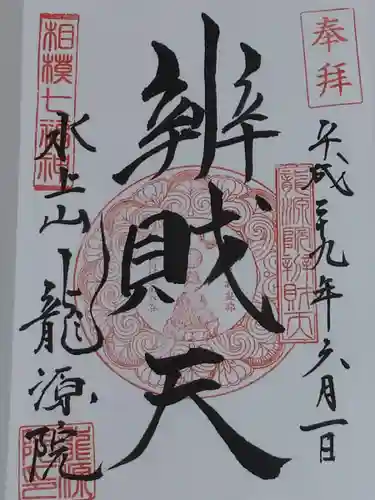 奉拝
平成二十九年六月一日
龍源院辨財天
辨財天
相模七福神
水上山龍源院
龍源